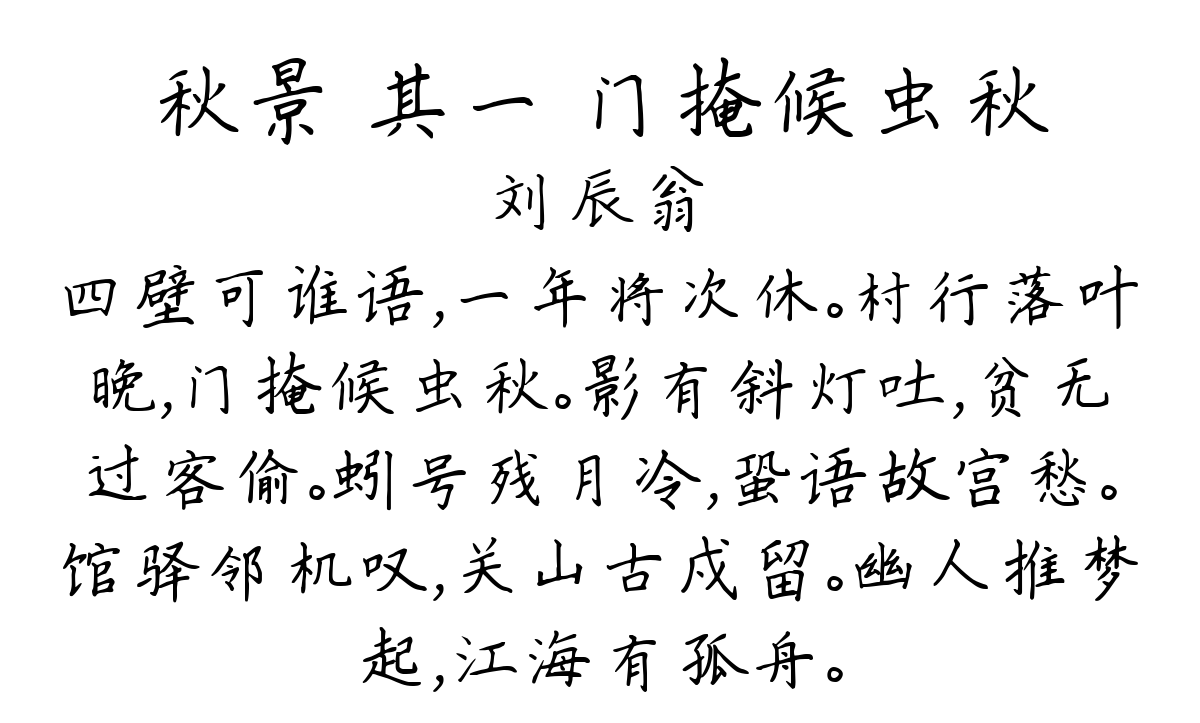 秋景 其一 门掩候虫秋
刘辰翁
四壁可谁语,一年将次休。村行落叶
晚,门掩候虫秋。影有斜灯吐,贫无
过客偷。蚓号残月冷,蛩语故宫愁。
馆驿邻机叹,关山古戍留。幽人推梦
起,江海有孤舟。